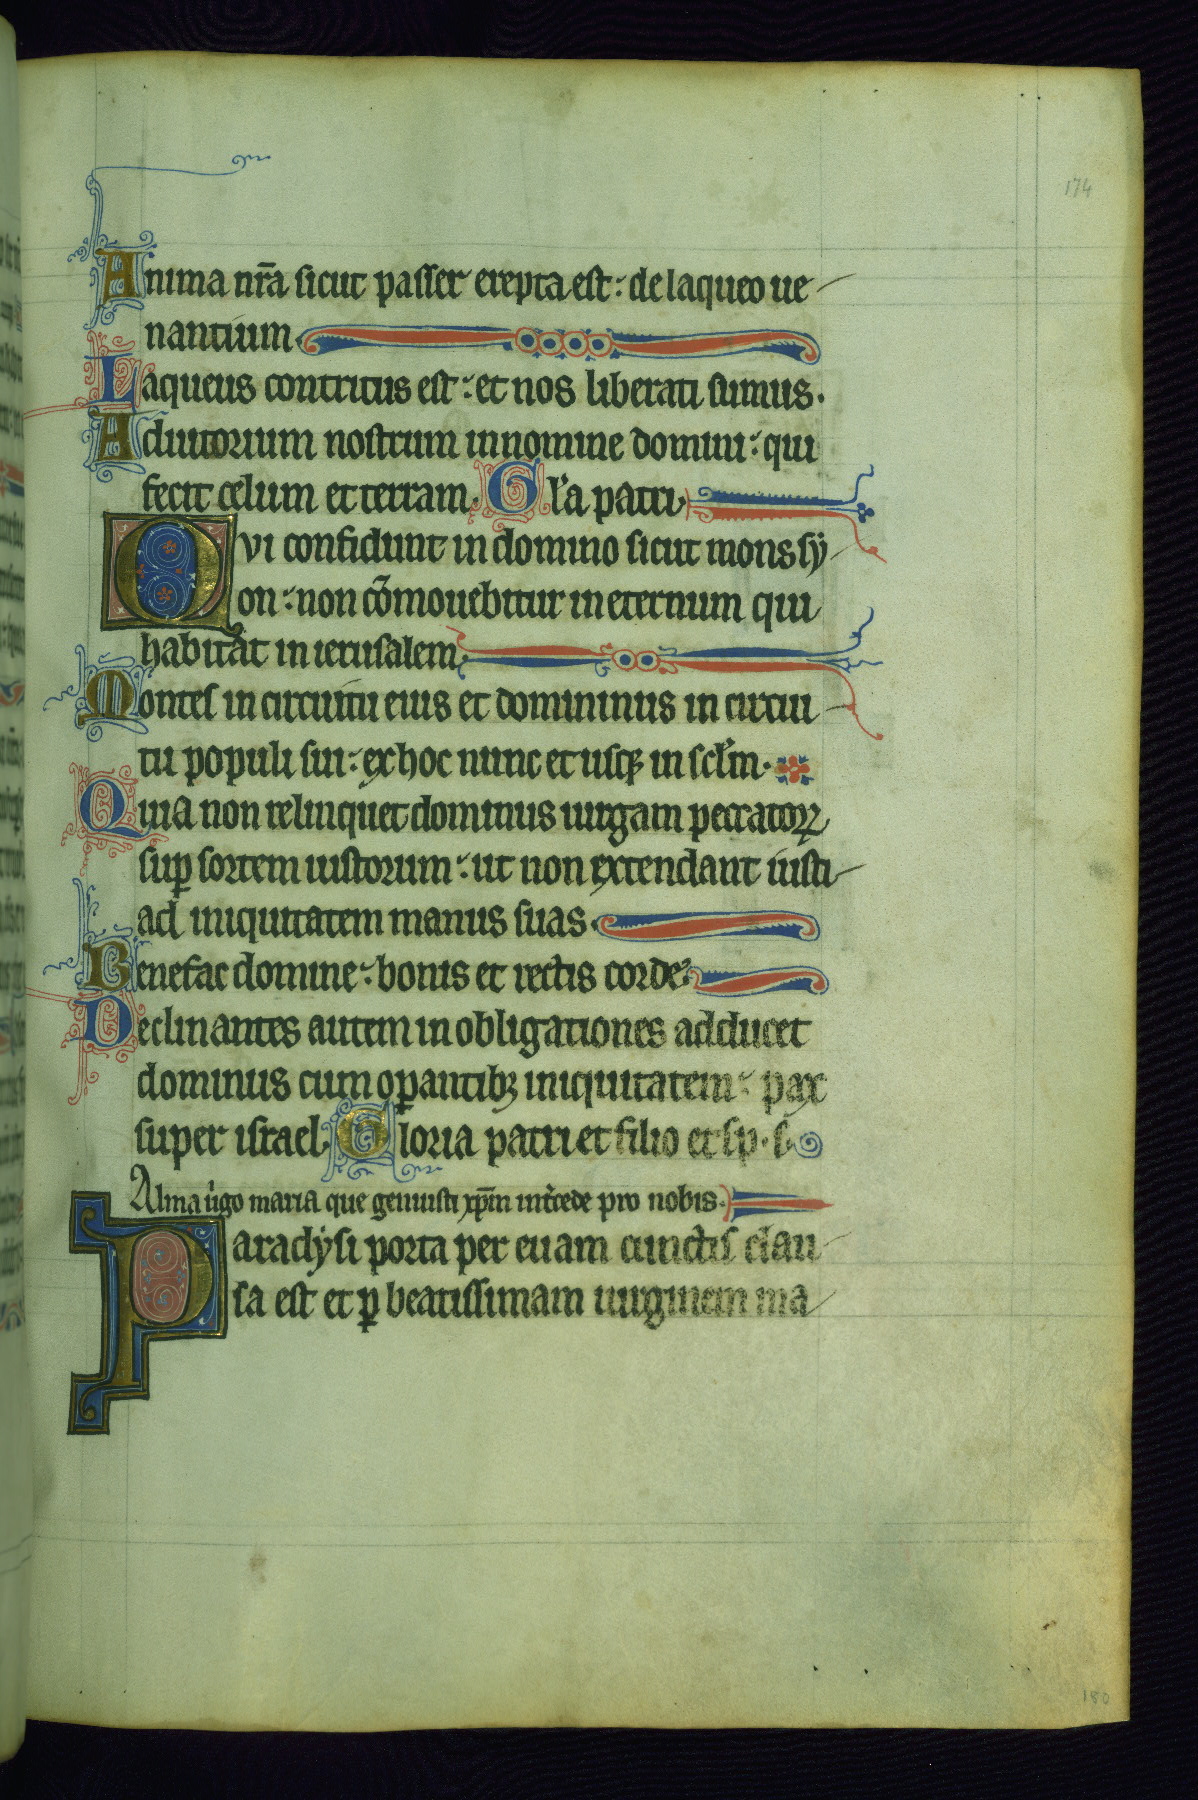 174
Anima nr̄a sicut passer erepta est: de laqueo ue
nantium.
Laqueus contritus est: et nos liberati sumus.
Adiutorium nostrum in nomine domini: qui
fecit celum et terram. Gl'a patri.
Qvi confidunt in domino sicut mons sẏ
on: non cōmouebitur in eternum qui
habitat in ierusalem.
Montes in circuitu eius et domininus in circui
tu populi sui: ex hoc nunc et usqꝫ in scl'm.
Quia non relinquet dominus uirgam peccatoꝝ
suꝑ sortem iustorum: ut non extendant iusti
ad iniquitatem manus suas.
Benefac domine: bonis et rectis corde.
Declinantes autem in obligationes adducet
dominus cum oꝑantibꝫ iniquitatem: pax
super israel. Gloria patri et filio et sp. s.
Alma ũgo maria que genuisti xp̄m int̃cede pro nobis.
Paradẏsi porta per euam cunctis clau
sa est et ꝑ beatissimam uirginem ma
180